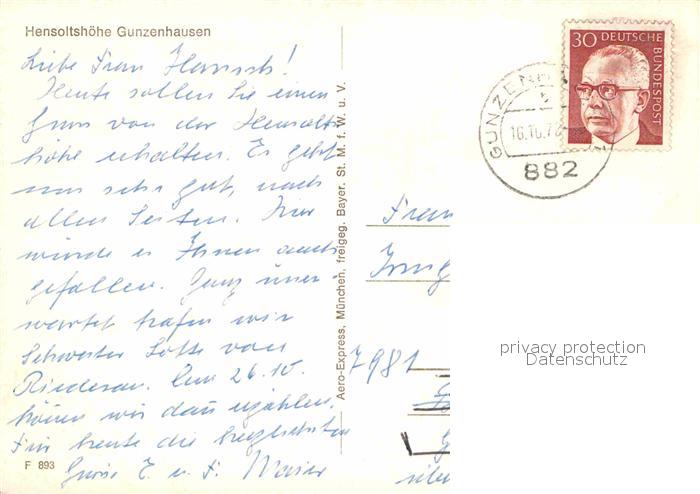 Hensoltshöhe Gunzenhausen
Liebe Frau Hanisch!
Heute sollen Sie einen
Gruss von der Hensolts-
höhe erhalten. Es geht
uns sehr gut, nach
allen Seiten. Hier
würde es Ihnen auch
gefallen. Ganz uner-
wartet trafen wir
Schwester Lotte von
Riederau. Am 26.10.
können wir dann erzählen.
Für heute die herzlichsten
Grüsse E. u. F. Maier
F 893
Aero-Express, München, freigeg. Bayer. St. M. f. W. u. V.
30 DEUTSCHE
BUNDESPOST
16.10.7
882
Frau
7981
privacy protection
Datenschutz